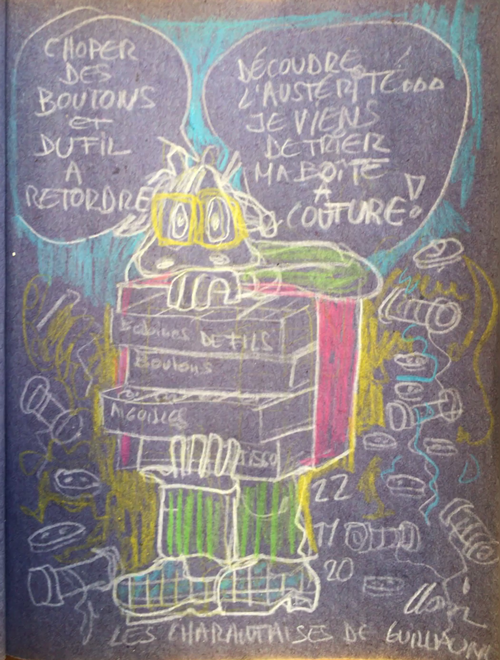 CHOPER
DES
BOUTONS
ET
DU FIL
A
RETORDRE
DÉCOUDRE
L'AUSTÉRITÉ...
JE VIENS
DE TRIER
MA BOÎTE
À
COUTURE!
Bobines DE FILS
Boutons
AIGUILLES
22
11
20
LES CHARANTAISES DE GUILLAUME